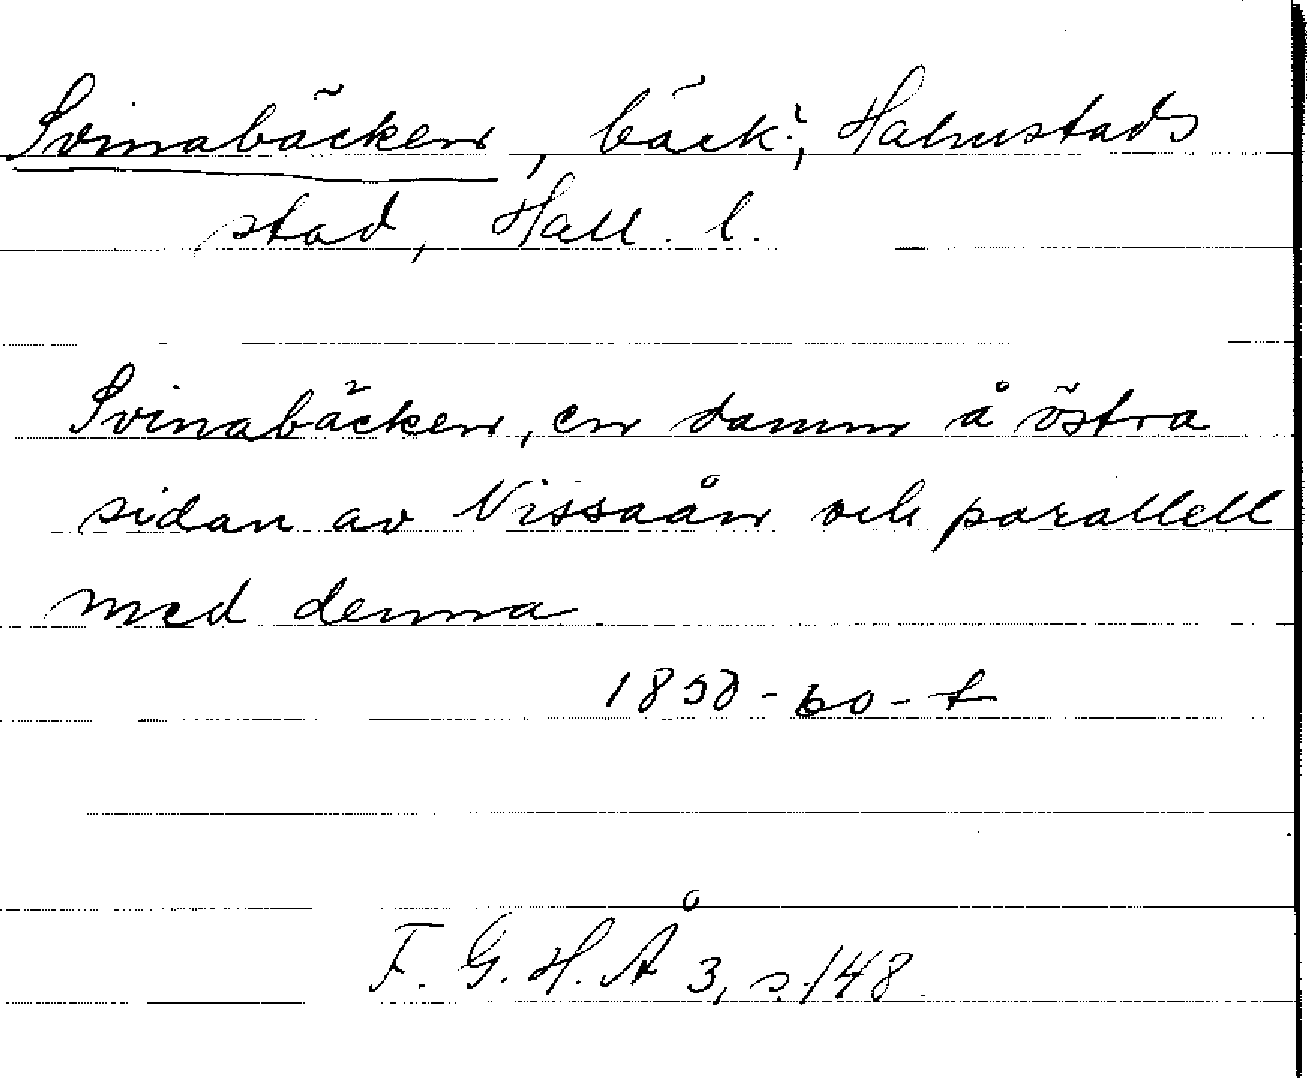 Svinabäcken, bäck?, Halmstads
stad, Hall. l.
Svinabäcken, en damm å östra
sidan av Nissaån och parallell
med denna
1850-60-t
F. G. H. Å 3, s. 148